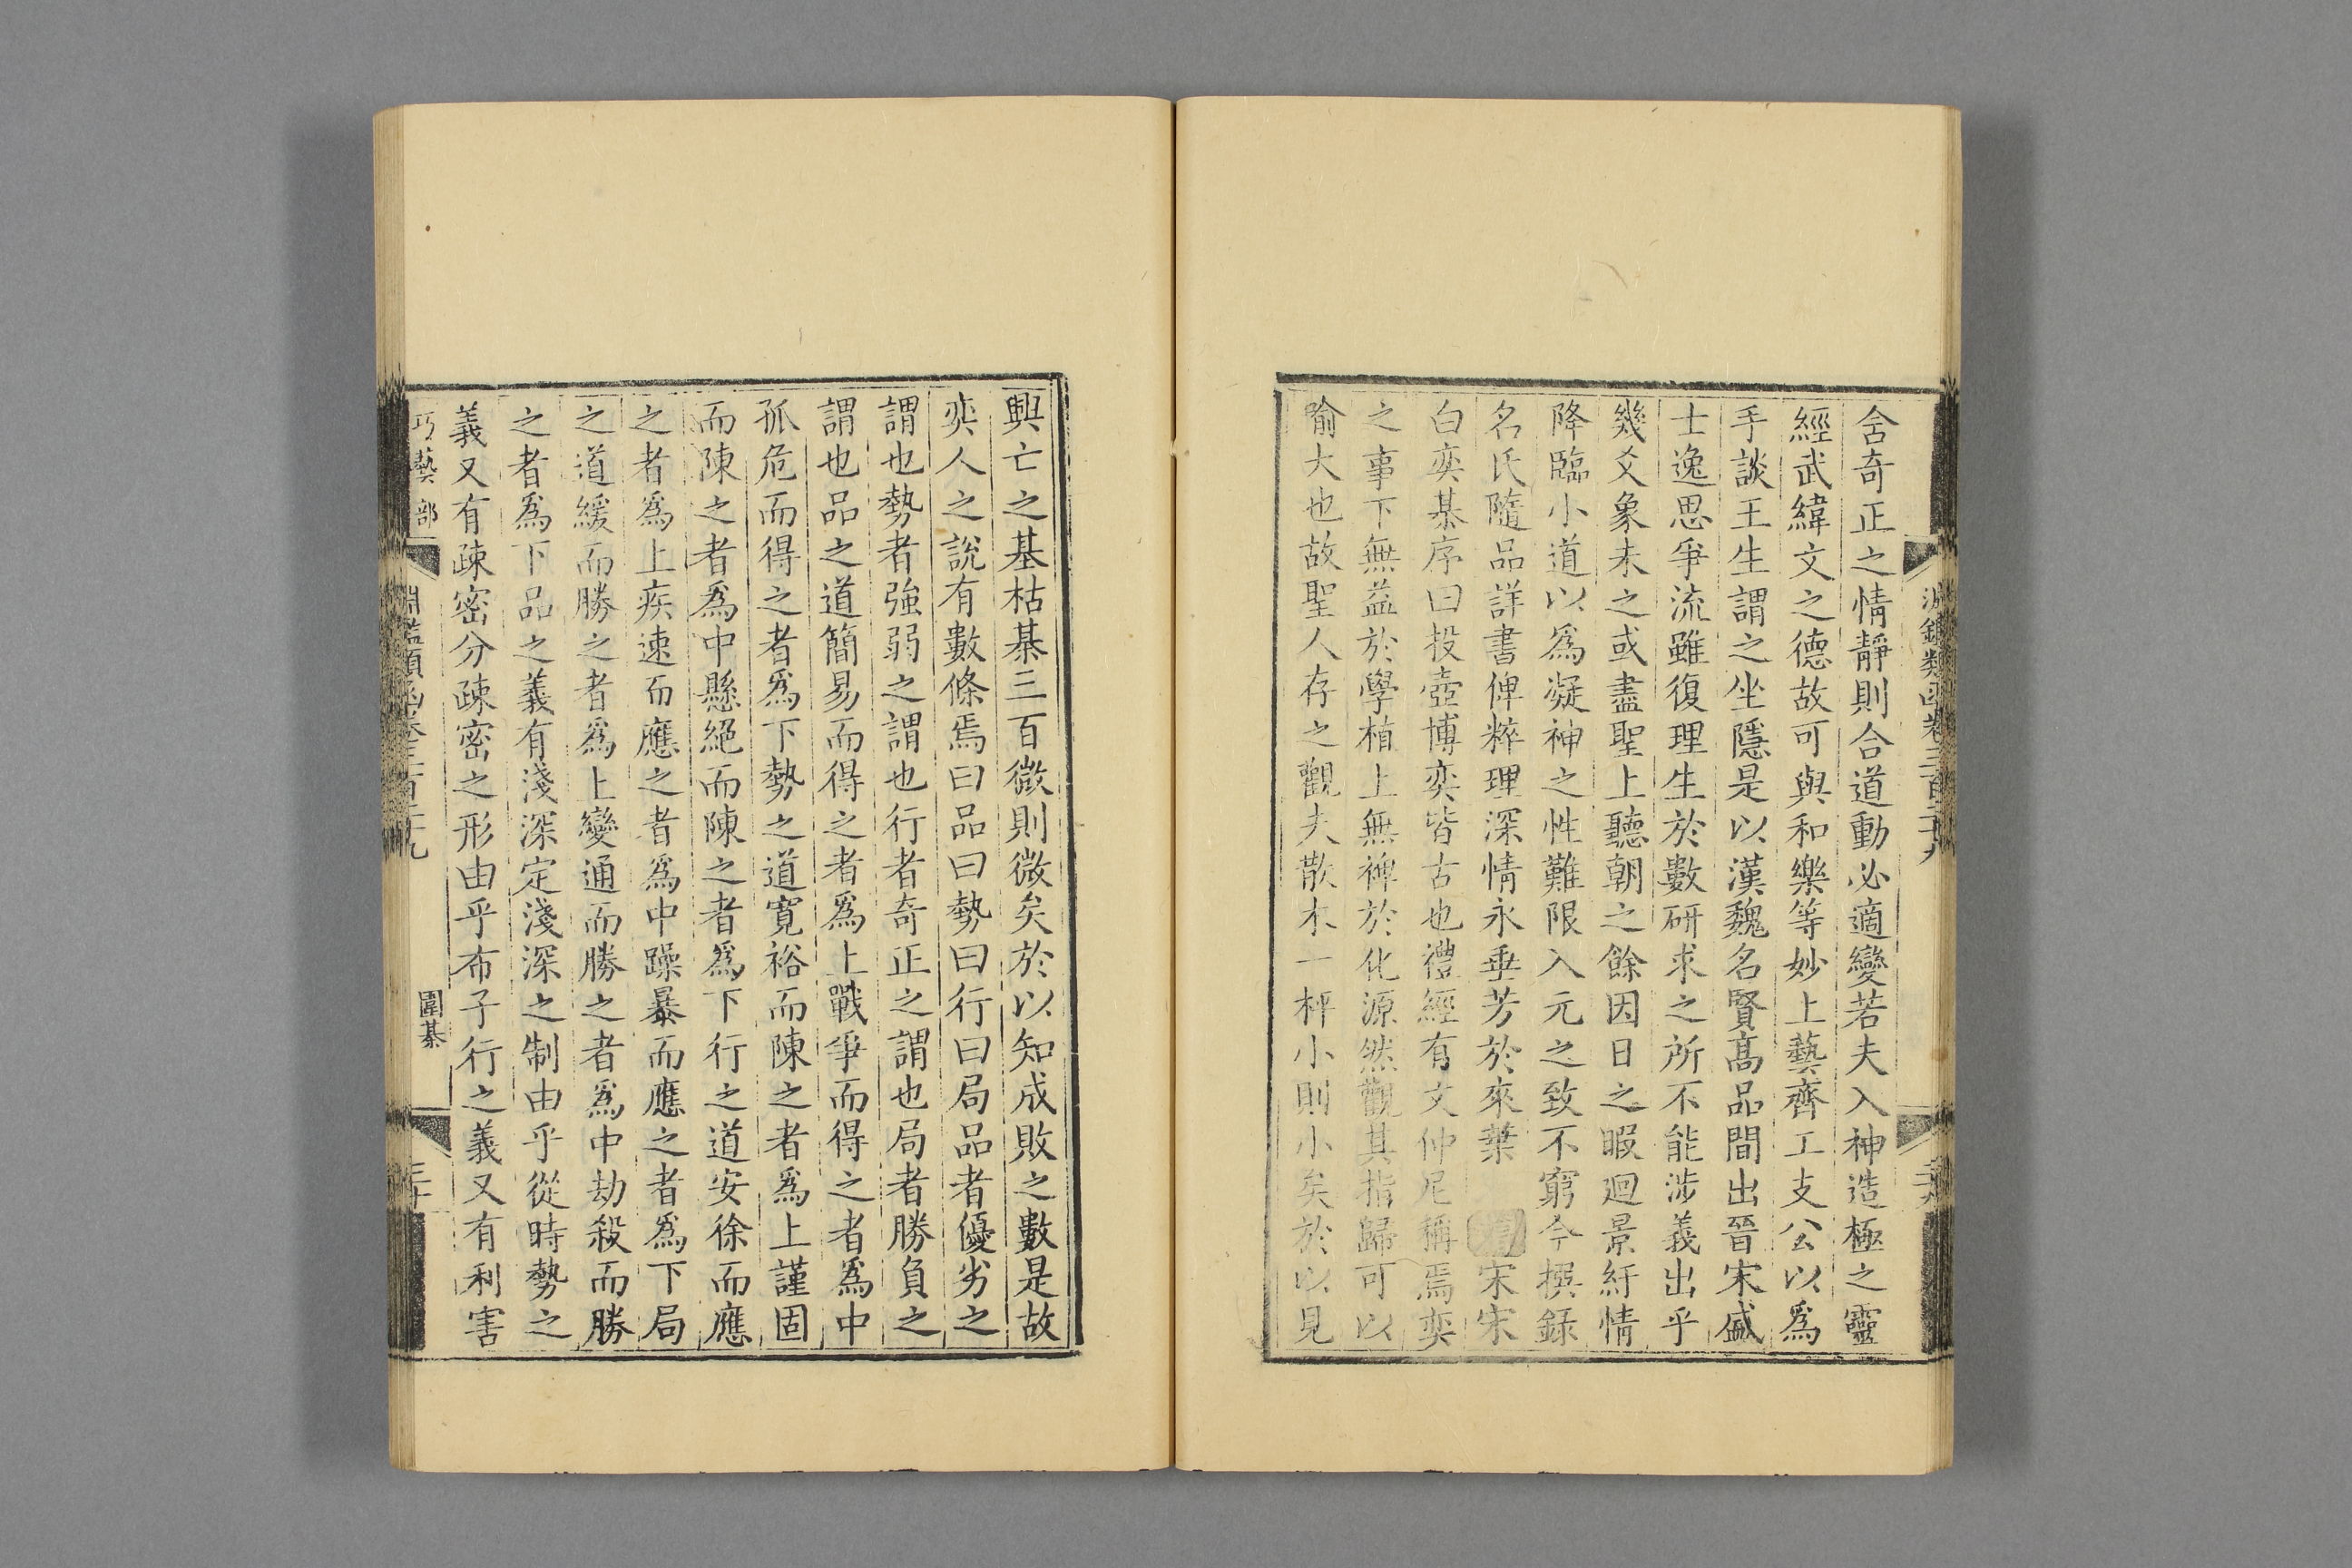 淵鑑類函卷三百二十九
舍奇正之情靜則合道動必適變若夫入神造極之靈
經武緯文之德故可與和樂等妙上藝齊工支公以爲
手談王生謂之坐隱是以漢魏名賢髙品間出晉宋盛
士逸思爭流雖復理生於數研求之所不能涉義出乎
幾爻象未之或盡聖上聽朝之餘因日之暇廻景紆情
降臨小道以爲凝神之性難限入元之致不窮今撰錄
名氏隨品詳書俾粹理深情永垂芳於來葉　增宋宋
白奕棊序曰投壺博奕皆古也禮經有文仲尼稱焉奕
之事下無益於學植上無裨於化源然觀其指歸可以
喻大也故聖人存之觀夫散木一枰小則小矣於以見
興亡之基枯棊三百微則微矣於以知成敗之數是故
奕人之說有數條焉曰品曰勢曰行曰局品者優劣之
謂也勢者強弱之謂也行者奇正之謂也局者勝負之
謂也品之道簡易而得之者爲上戰爭而得之者爲中
孤危而得之者爲下勢之道寛裕而陳之者爲上謹固
而陳之者爲中懸絕而陳之者爲下行之道安徐而應
之者爲上疾速而應之者爲中躁暴而應之者爲下局
之道緩而勝之者爲上變通而勝之者爲中劫殺而勝
之者爲下品之義有淺深定淺深之制由乎從時勢之
義又有疎密分疎密之形由乎布子行之義又有利害
巧藝部
淵鑑類函卷三百二十九
圍棊
三十